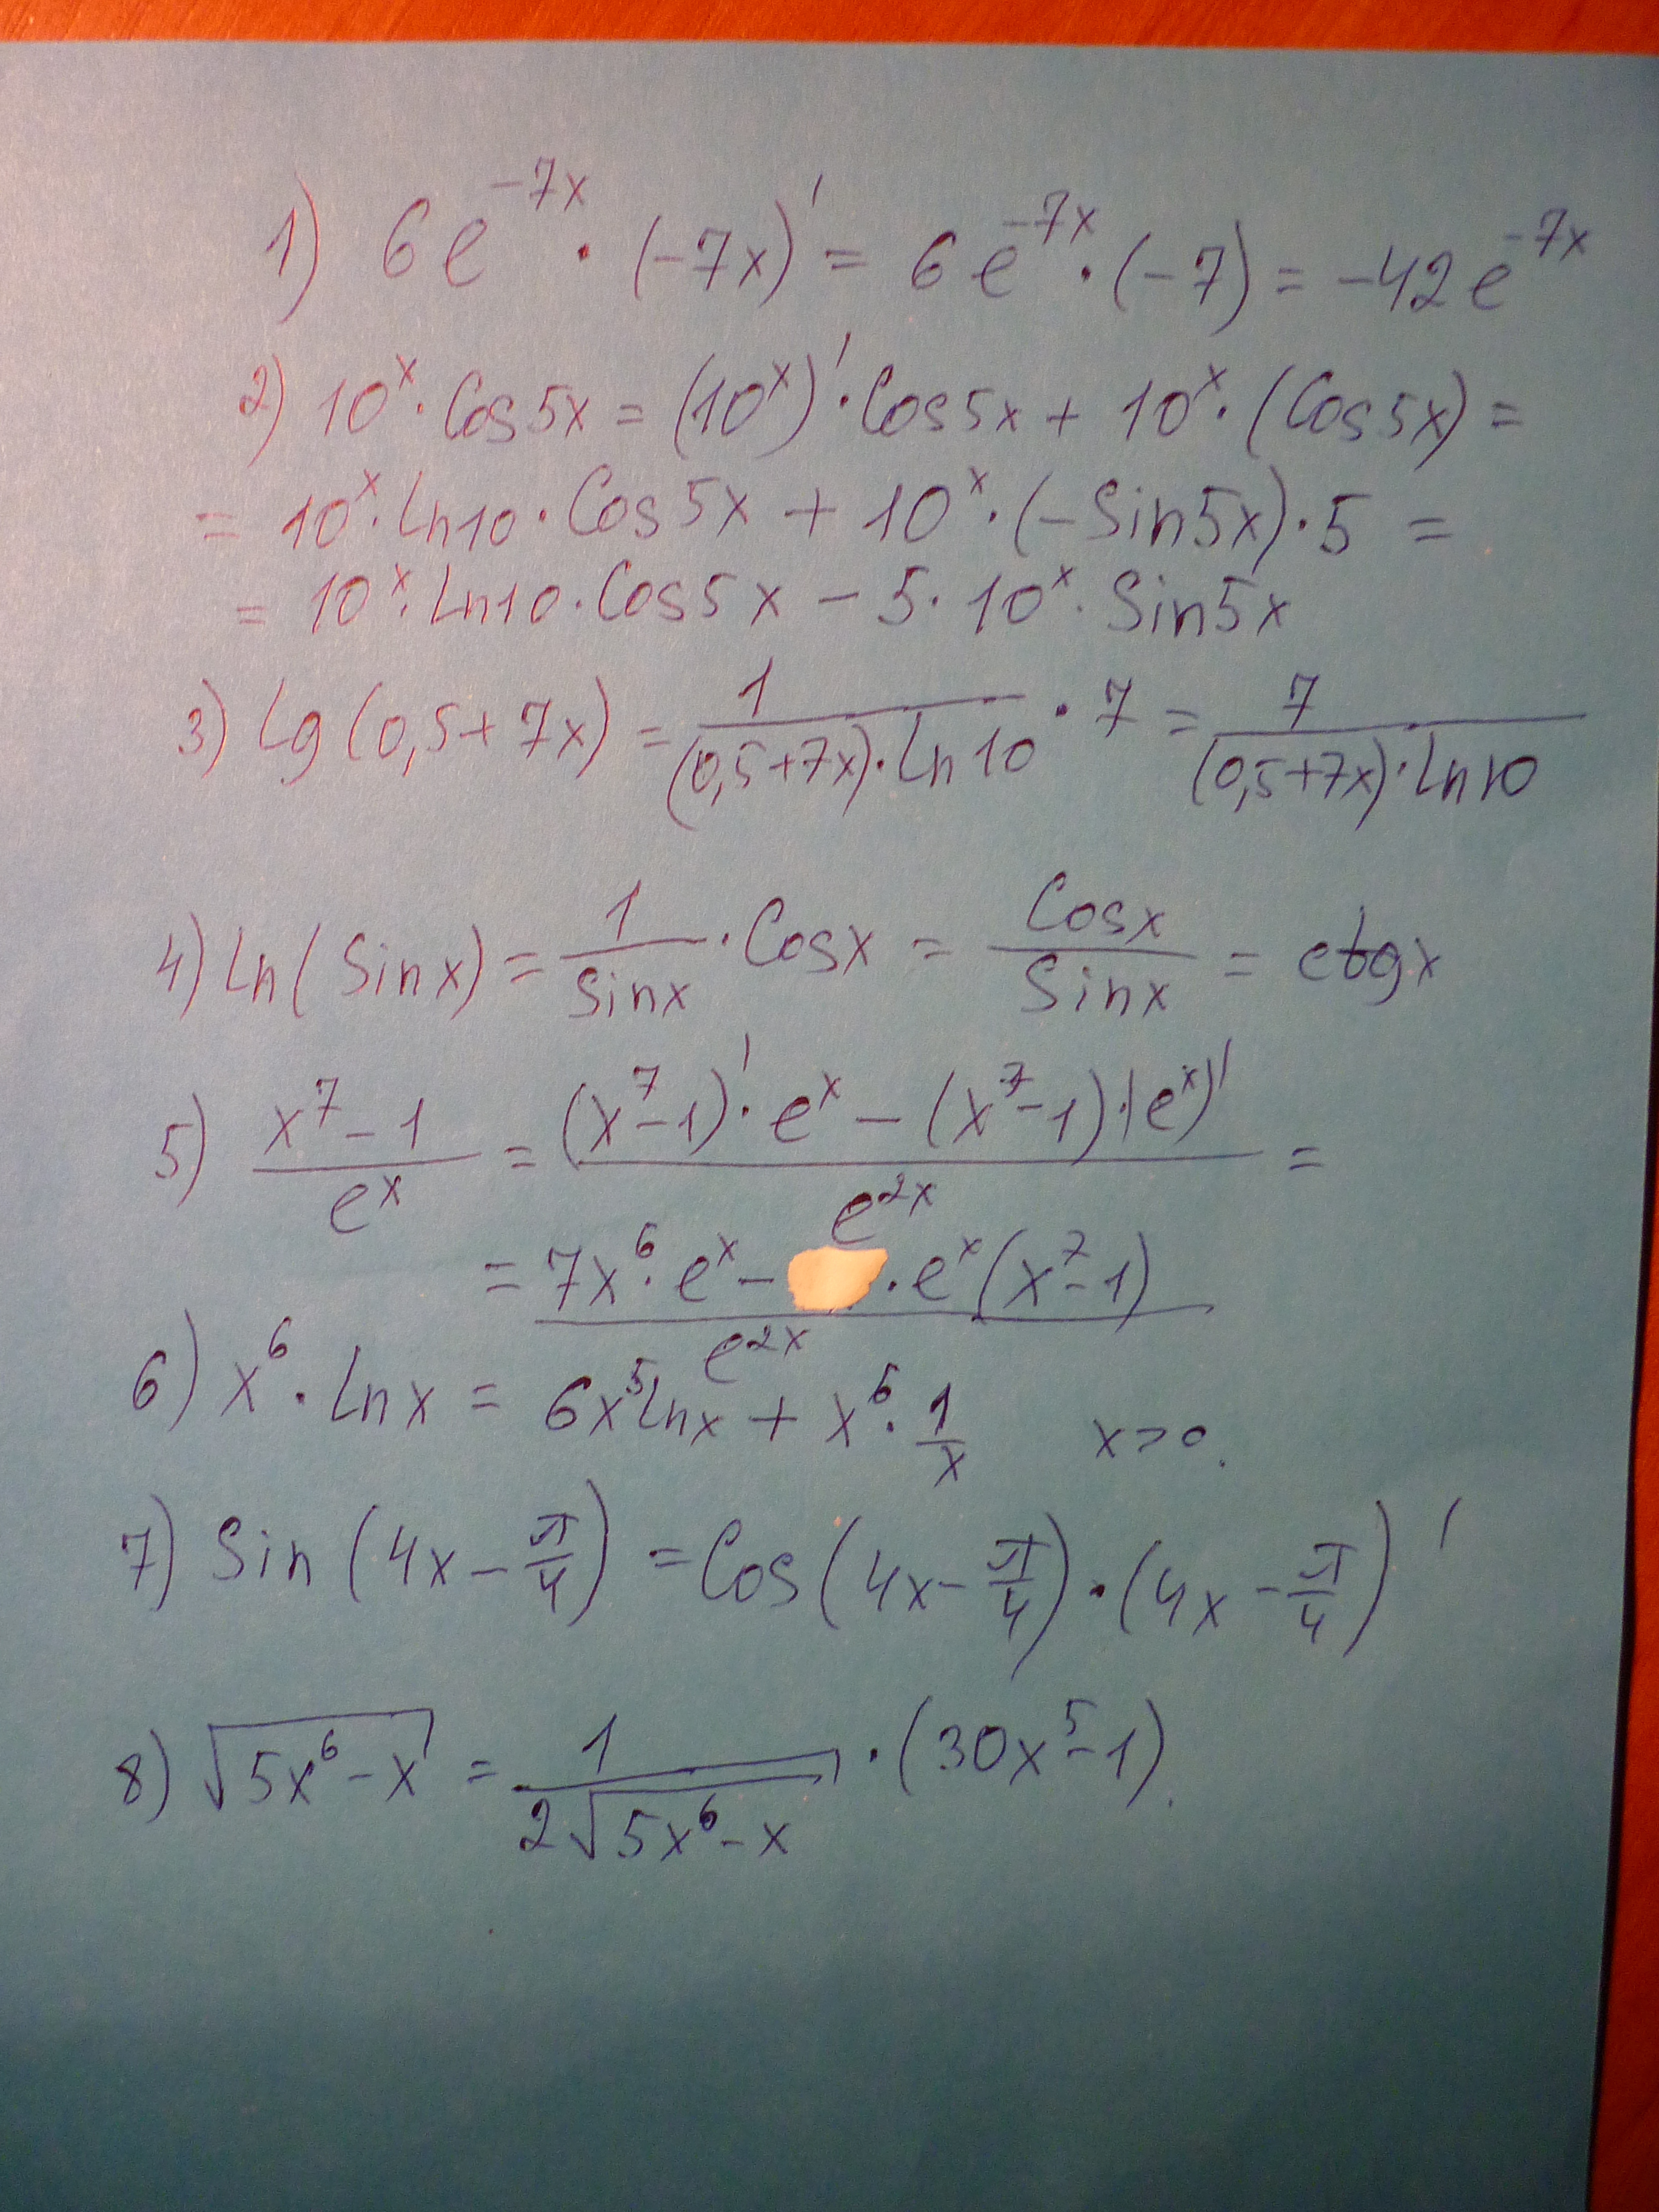 1) 6e^{-7x} · (-7x)' = 6e^{-7x} · (-7) = -42e^{-7x}
2) 10^x · Cos5x = (10^x)' · Cos5x + 10^x · (Cos5x) =
= 10^x · Ln10 · Cos5x + 10^x · (-Sin5x) · 5 =
= 10^x · Ln10 · Cos5x - 5 · 10^x · Sin5x
3) Lg(0,5+7x) = \frac{1}{(0,5+7x) · Ln10} · 7 = \frac{7}{(0,5+7x) · Ln10}
4) Ln(Sinx) = \frac{1}{Sinx} · Cosx = \frac{Cosx}{Sinx} = ctgx
5) \frac{x^7-1}{e^x} = \frac{(x^7-1)' · e^x - (x^7-1) · (e^x)'}{e^{2x}} =
= \frac{7x^6 · e^x - · e^x(x^7-1)}{e^{2x}}
6) x^6 · Lnx = 6x^5lnx + x^6 · \frac{1}{x} x>0.
7) Sin(4x - \frac{π}{4}) = Cos(4x - \frac{π}{4}) · (4x - \frac{π}{4})'
8) \sqrt{5x^6-x} = \frac{1}{2\sqrt{5x^6-x}} · (30x^5-1).